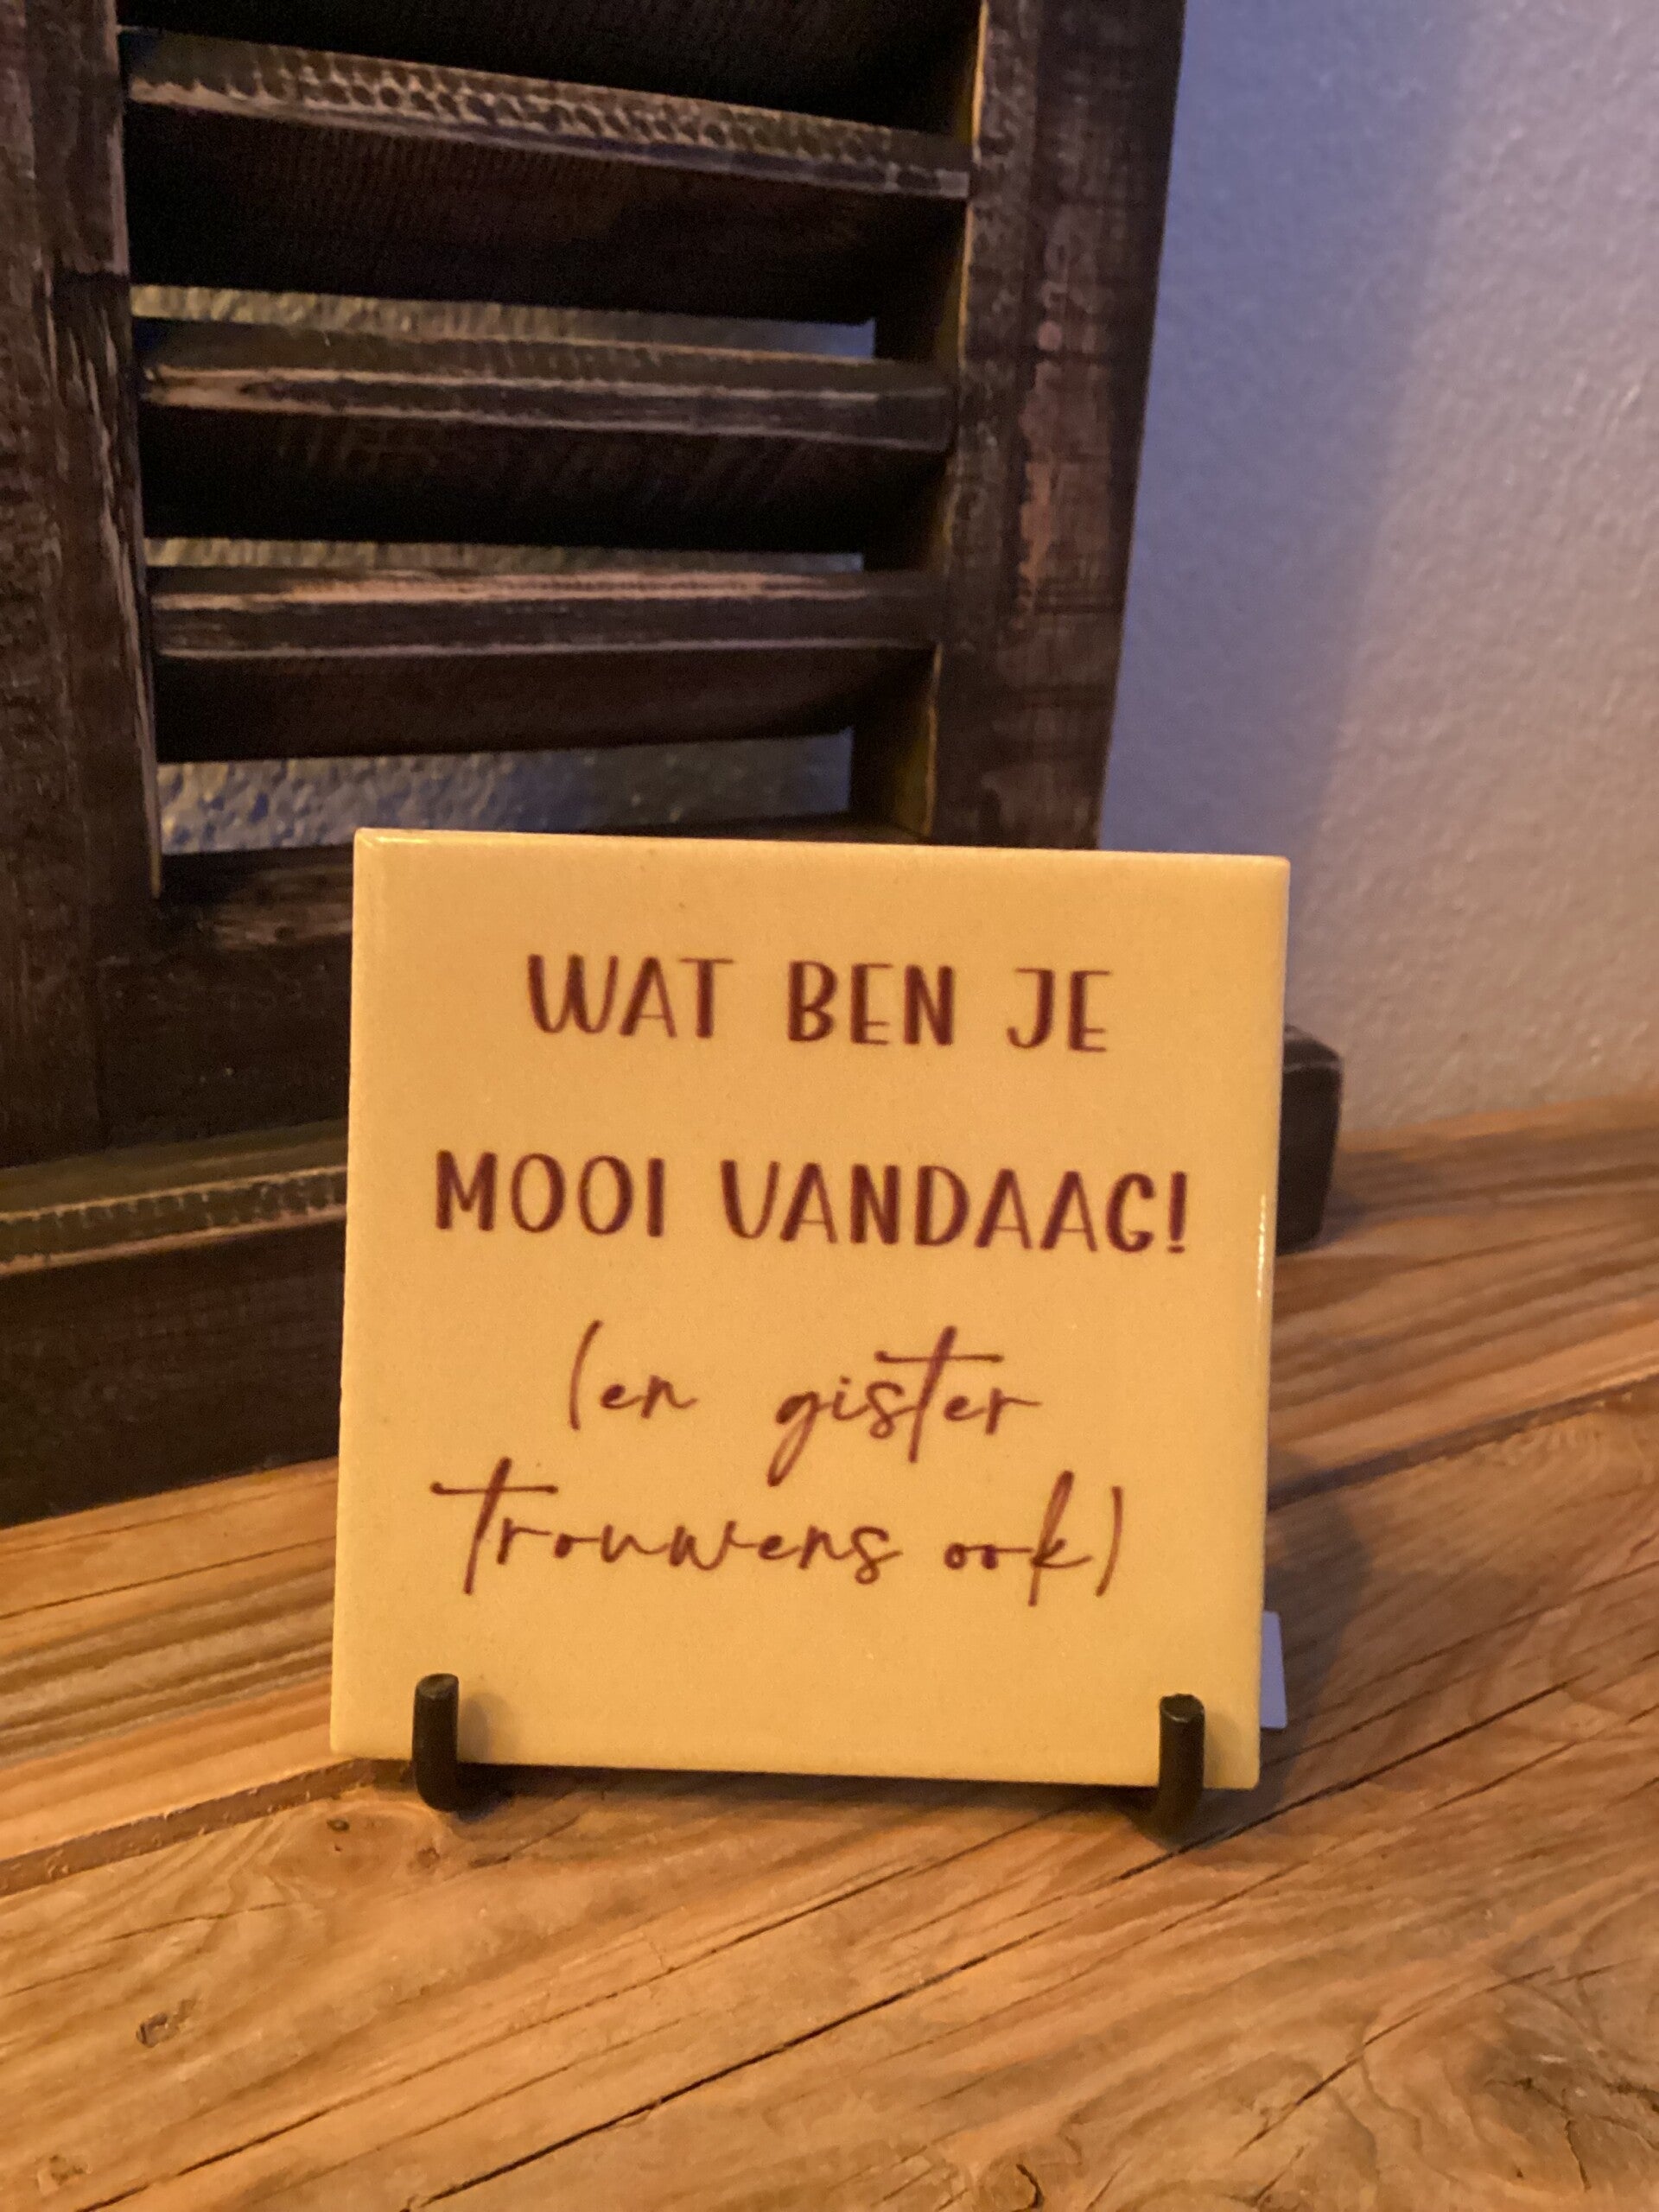 WAT BEN JE
MOOI VANDAAG!
(en gister
trouwens ook)